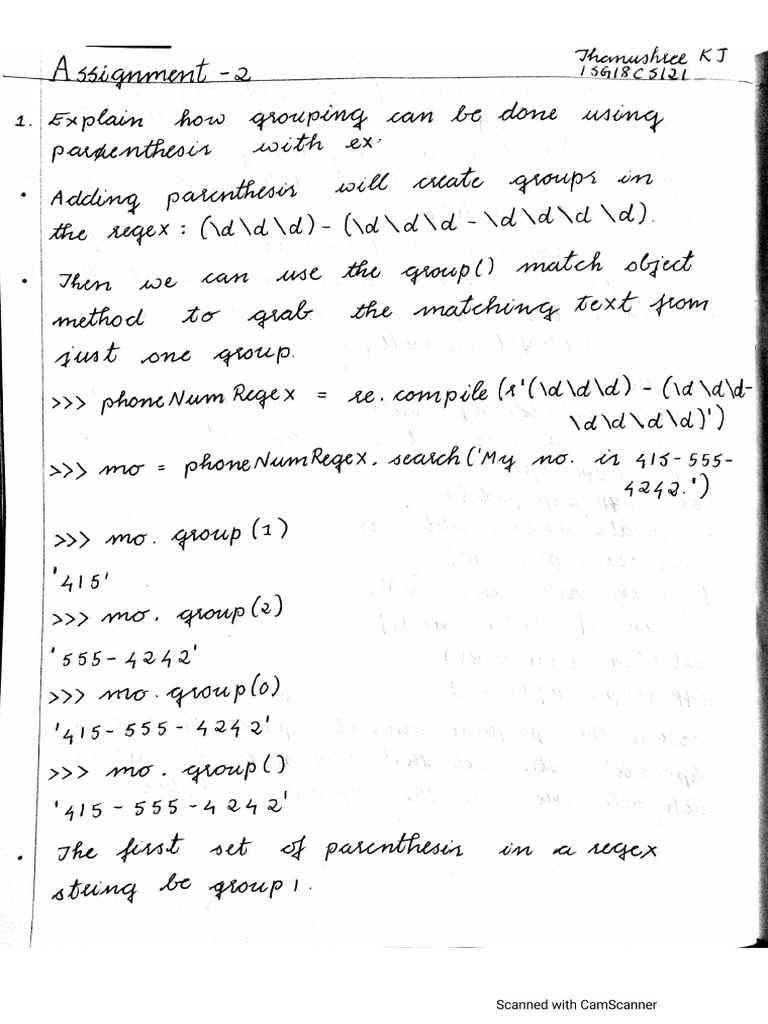 Thanushree KJ
1SG18CS121
Assignment -2
1. Explain how grouping can be done using
parenthesis with ex.
• Adding parenthesis will create groups in
the regex : (\d\d\d) - (\d\d\d - \d\d\d\d).
• Then we can use the group() match object
method to grab the matching text from
just one group.
>>> phoneNumRegex = re.compile(r'(\d\d\d) - (\d\d\d-
\d\d\d\d)')
>>> mo = phoneNumRegex.search('My no. is 415-555-
4242.')
>>> mo. group(1)
'415'
>>> mo. group(2)
'555-4242'
>>> mo. group(0)
'415-555-4242'
>>> mo. group()
'415-555-4242'
• The first set of parenthesis in a regex
string be group 1.
Scanned with CamScanner